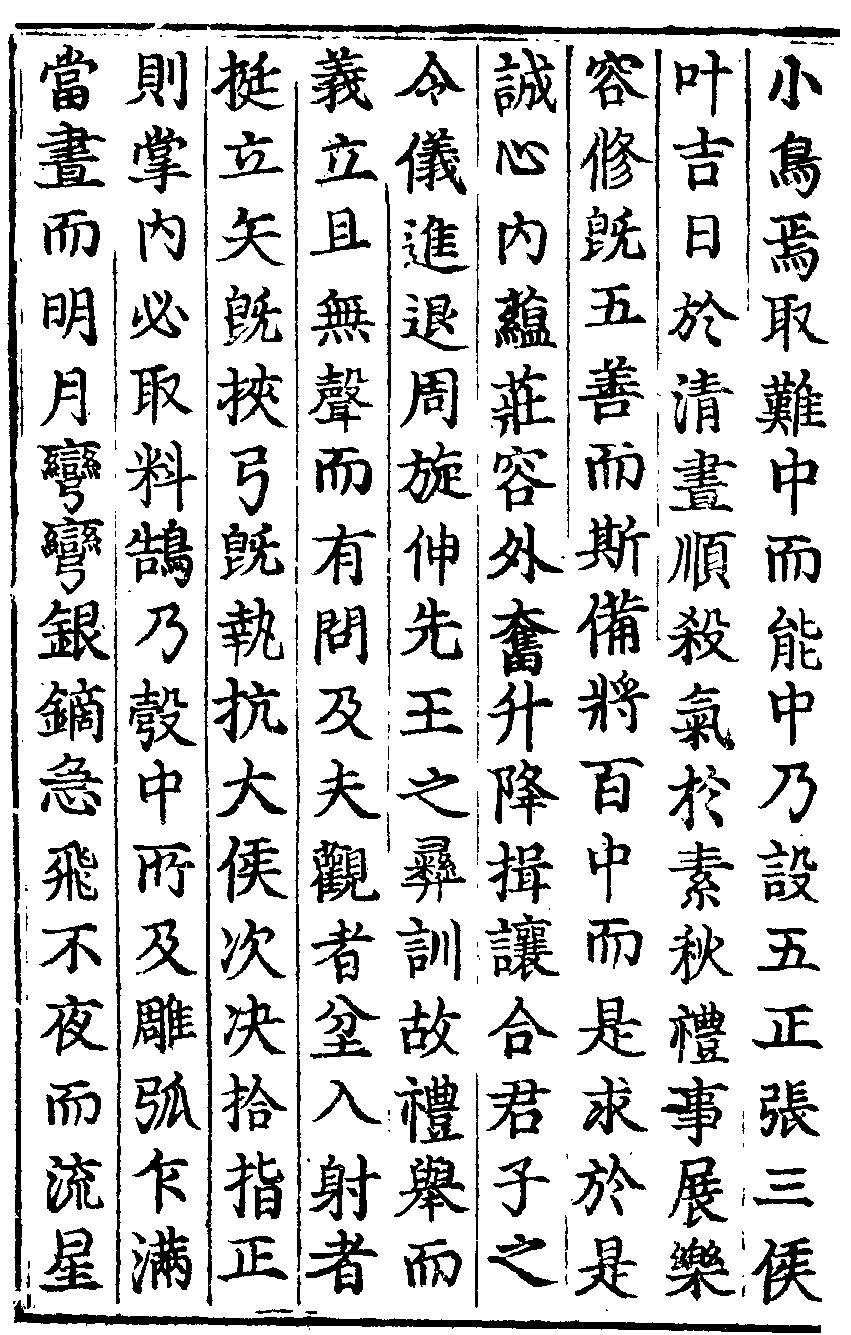 小鳥焉取難中而能中乃設五正張三侯
叶吉日於清晝順殺氣於素秋禮事展樂
容修旣五善而斯備將百中而是求於是
誠心內蘊莊容外奮升降揖讓合君子之
令儀進退周旋伸先王之彛訓故禮舉而
義立且無聲而有問及夫觀者坌入射者
挺立矢旣挾弓旣執抗大侯次决拾指正
則掌內必取料鵠乃彀中所及雕弧乍滿
當晝而明月彎彎銀鏑急飛不夜而流星